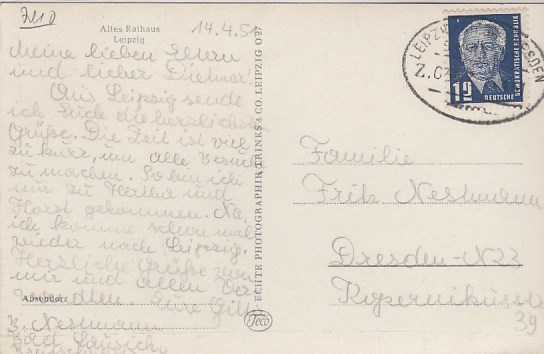 Altes Rathaus
Leipzig
14.4.51
Meine lieben Eltern
und lieber Dietmar!
Aus Leipzig sende
ich Euch die herzlichst
Grüße. Die Zeit ist viel
zu kurz, um alle Besuche
zu machen. So bin ich
nur zu Hertha und
Horst gekommen. Na,
ich komme schon mal
wieder nach Leipzig.
Herzliche Grüße von
mir und allen Ver
wandten. Eure
Absender:
Nestmann
Bad Lausick
ECHTE PHOTOGRAPHIE TRINKS & CO. LEIPZIG O27
Teco
LEIPZIG
DRESDEN
Z.
12
DEUTSCHE
DEMOKRATISCHE REPUBLIK
Familie
Fritz Nestmann
Dresden-N23
Kopernikusstr
39